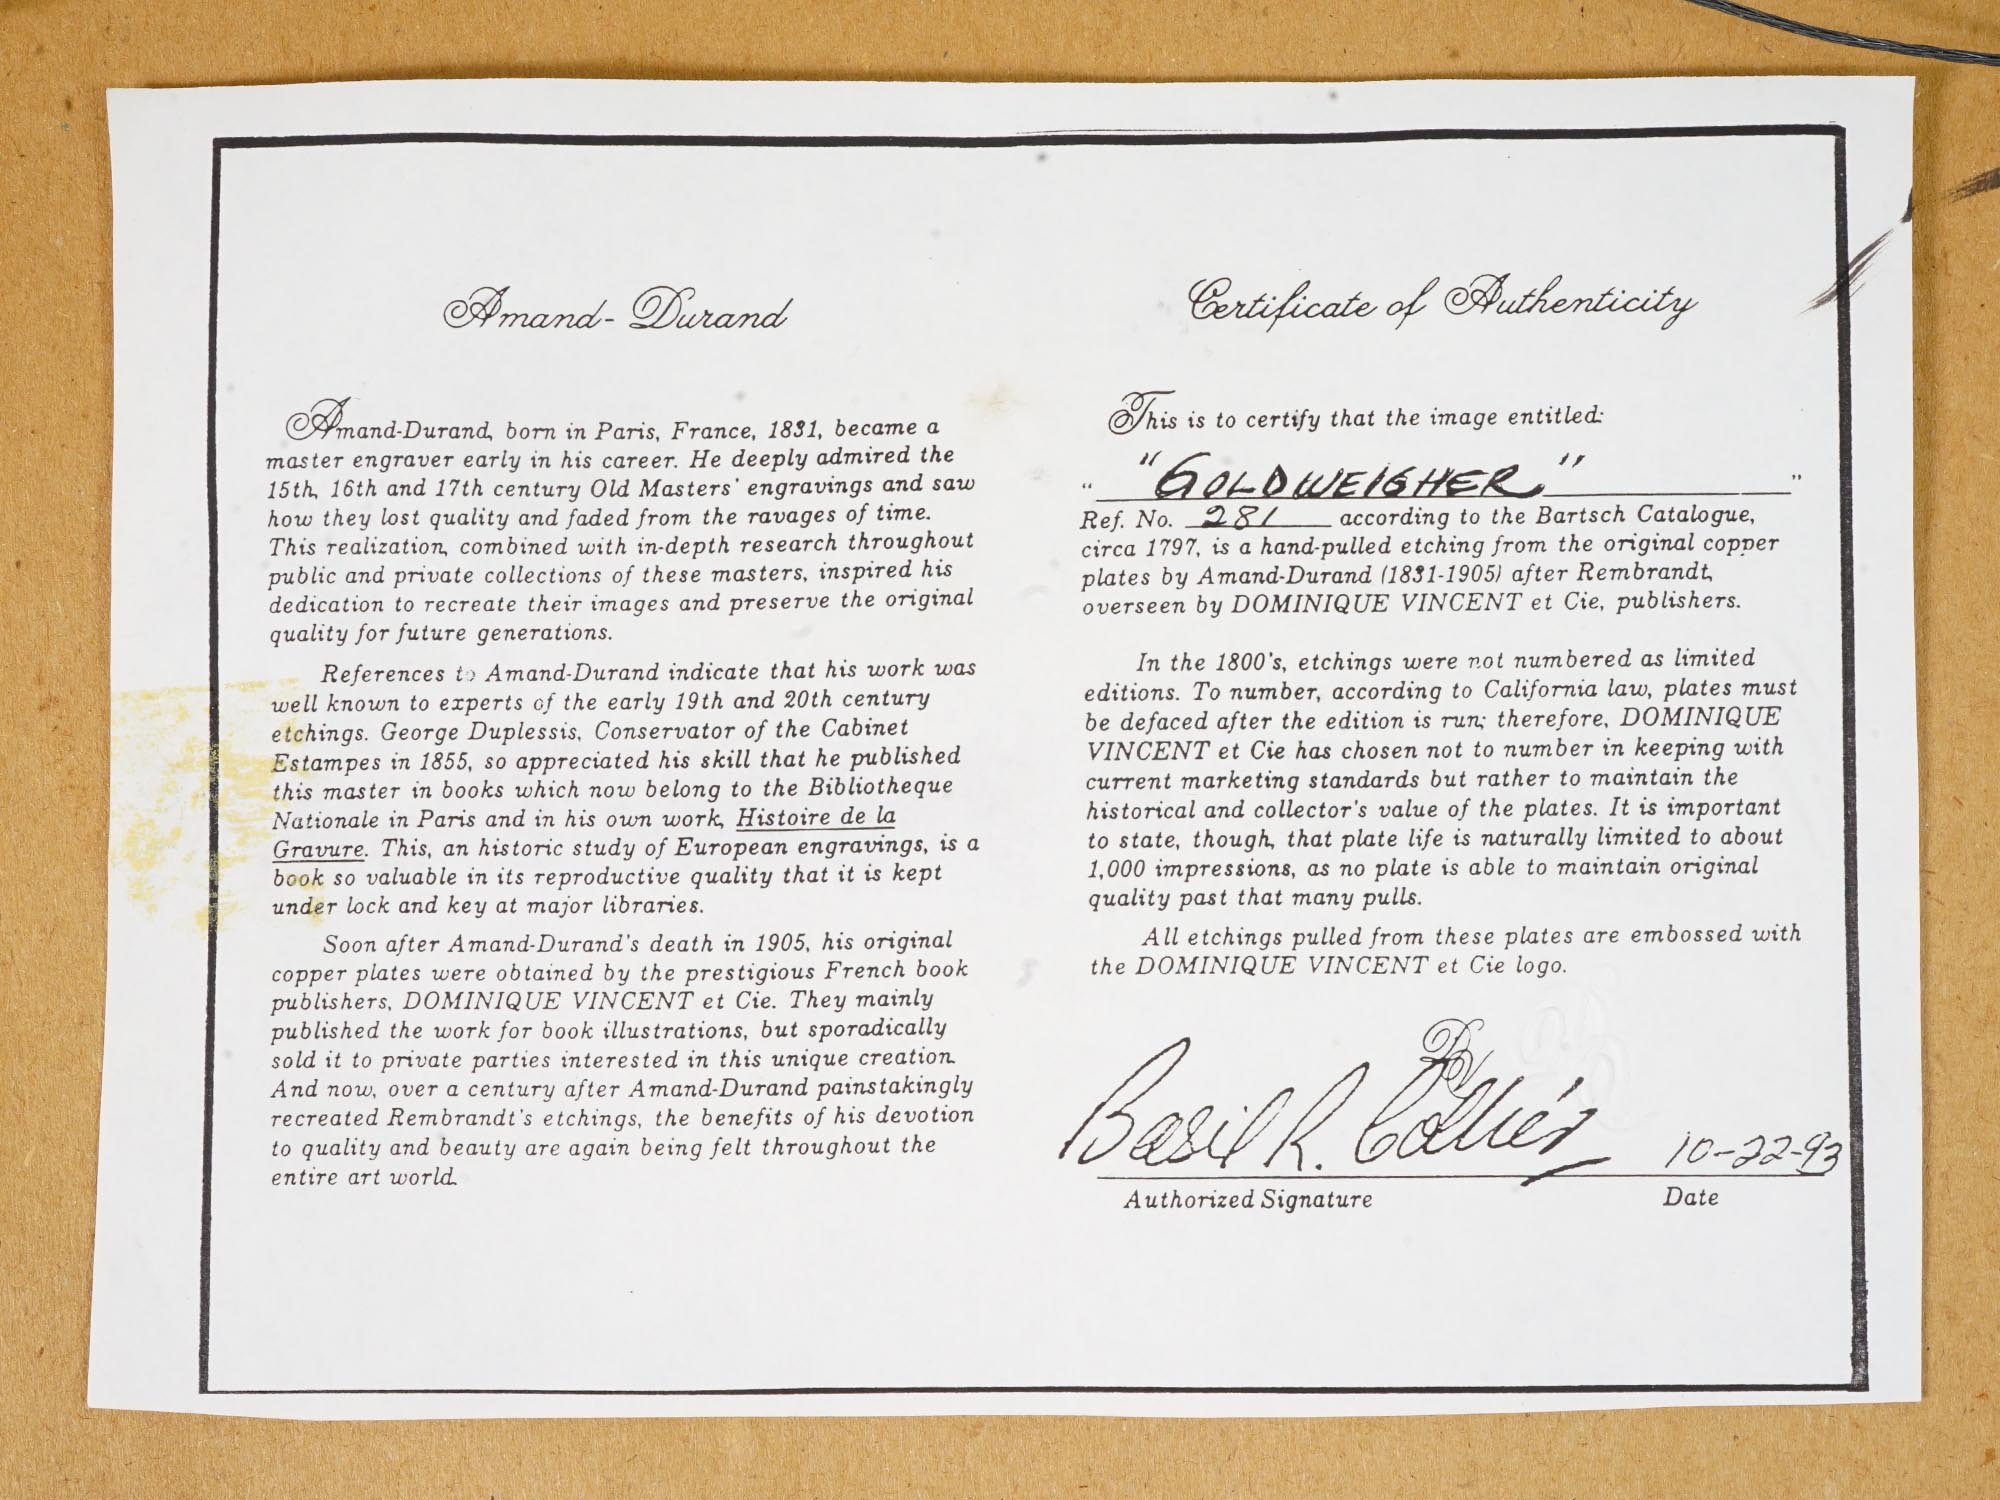 Amand-Durand
Amand-Durand, born in Paris, France, 1831, became a
master engraver early in his career. He deeply admired the
15th, 16th and 17th century Old Masters' engravings and saw
how they lost quality and faded from the ravages of time.
This realization, combined with in-depth research throughout
public and private collections of these masters, inspired his
dedication to recreate their images and preserve the original
quality for future generations.
References to Amand-Durand indicate that his work was
well known to experts of the early 19th and 20th century
etchings. George Duplessis, Conservator of the Cabinet
Estampes in 1855, so appreciated his skill that he published
this master in books which now belong to the Bibliotheque
Nationale in Paris and in his own work, Histoire de la
Gravure. This, an historic study of European engravings, is a
book so valuable in its reproductive quality that it is kept
under lock and key at major libraries.
Soon after Amand-Durand's death in 1905, his original
copper plates were obtained by the prestigious French book
publishers, DOMINIQUE VINCENT et Cie. They mainly
published the work for book illustrations, but sporadically
sold it to private parties interested in this unique creation.
And now, over a century after Amand-Durand painstakingly
recreated Rembrandt's etchings, the benefits of his devotion
to quality and beauty are again being felt throughout the
entire art world.
Certificate of Authenticity
This is to certify that the image entitled:
" "GOLDWEIGHER" "
Ref. No. 281 according to the Bartsch Catalogue,
circa 1797, is a hand-pulled etching from the original copper
plates by Amand-Durand (1831-1905) after Rembrandt,
overseen by DOMINIQUE VINCENT et Cie, publishers.
In the 1800's, etchings were not numbered as limited
editions. To number, according to California law, plates must
be defaced after the edition is run; therefore, DOMINIQUE
VINCENT et Cie has chosen not to number in keeping with
current marketing standards but rather to maintain the
historical and collector's value of the plates. It is important
to state, though, that plate life is naturally limited to about
1,000 impressions, as no plate is able to maintain original
quality past that many pulls.
All etchings pulled from these plates are embossed with
the DOMINIQUE VINCENT et Cie logo.
DV
Basil R. Collier 10-22-93
Authorized Signature Date